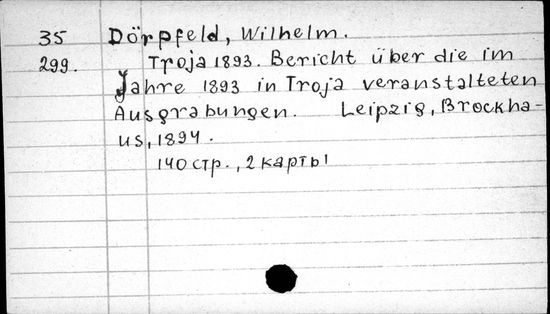 35 Dörpfeld, Wilhelm.
299. Troja 1893. Bericht über die im
Jahre 1893 in Troja veranstalteten
Ausgrabungen. Leipzig, Brockha-
us, 1894.
140 стр., 2 карты